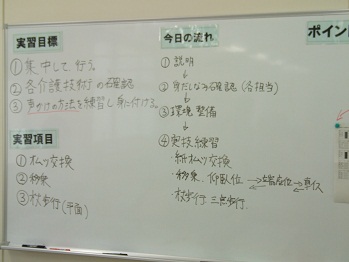 実習目標
①集中して行う。
②各介護技術の確認
③声かけの方法を練習し身に付ける。
実習項目
①オムツ交換
②移乗
③杖歩行(平面)
今日の流れ
①説明
↓
②身だしなみ確認(各担当)
↓
③環境整備
↓
④実技練習
・紙オムツ交換
・移乗 仰臥位→端座位→車イス
・杖歩行 三点歩行
ポイン